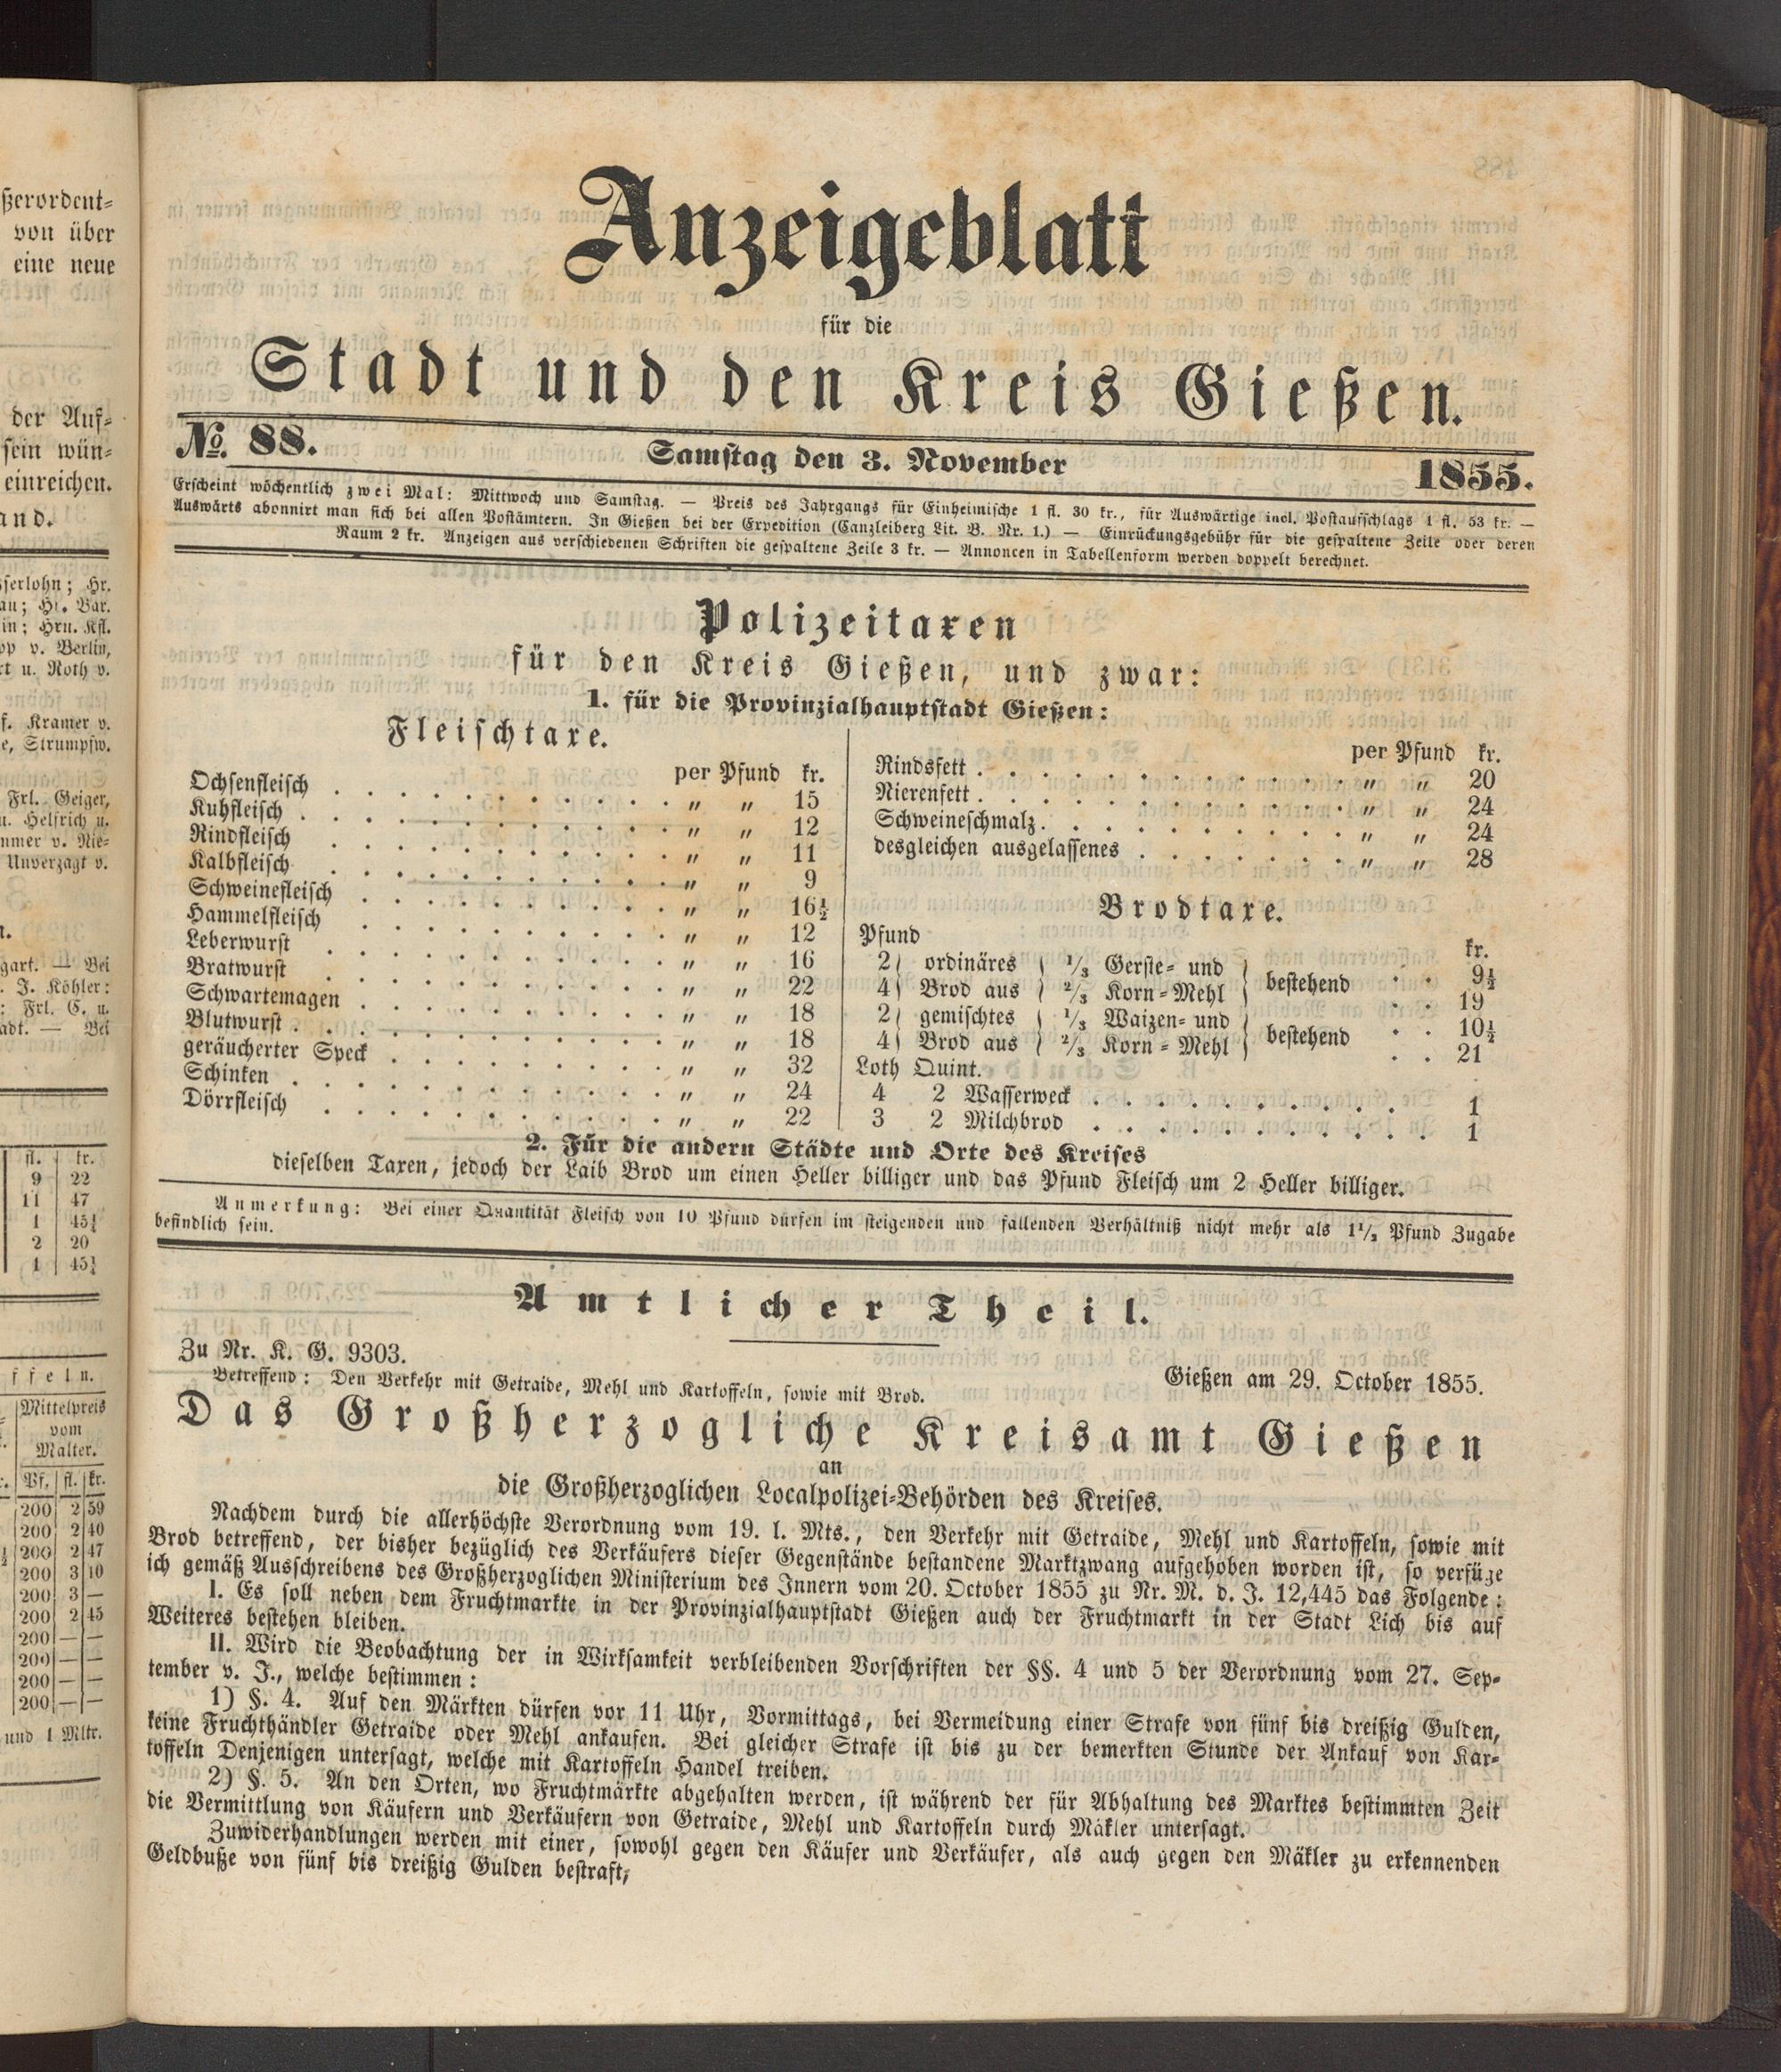 ßerordent-
von über
eine neue
der Auf-
sein wün-
einreichen.
and.
sserlohn; Hr.
in; Hrn. Kfl.
pp v. Berlin,
rt u. Roth v.
f. Kramer v.
e, Strumpfw.
Frl. Geiger,
u. Helfrich u.
mmer v. Nie-
Unverzagt v.
gart. — Bei
. J. Köhler:
: Frl. C. u.
adt. — Bei
fl. kr.
9 22
11 47
1 45¼
2 20
1 45¾
ffeln.
Mittelpreis
vom
Malter.
Pf. fl. kr.
200 2 59
200 2 40
200 2 47
200 3 10
200 3 —
200 2 45
200 — —
200 — —
200 — —
200 — —
und 1 Mltr.
Anzeigeblatt
für die
Stadt und den Kreis Gießen.
No. 88. Samstag den 3. November 1855.
Erscheint wöchentlich zwei Mal: Mittwoch und Samstag. — Preis des Jahrgangs für Einheimische 1 fl. 30 kr., für Auswärtige incl. Postaufschlags 1 fl. 53 kr. —
Auswärts abonnirt man sich bei allen Postämtern. In Gießen bei der Expedition (Canzleiberg Lit. B. Nr. 1.) — Einrückungsgebühr für die gespaltene Zeile oder deren
Raum 2 kr. Anzeigen aus verschiedenen Schriften die gespaltene Zeile 3 kr. — Annoncen in Tabellenform werden doppelt berechnet.
Polizeitaxen
für den Kreis Gießen, und zwar:
1. für die Provinzialhauptstadt Gießen:
Fleischtaxe.
per Pfund kr.
Ochsenfleisch . . . . . . . . . . . . „ „ 15
Kuhfleisch . . . . . . . . . . . . . „ „ 12
Rindfleisch . . . . . . . . . . . . „ „ 11
Kalbfleisch . . . . . . . . . . . . „ „ 9
Schweinefleisch . . . . . . . . . . . „ „ 16½
Hammelfleisch . . . . . . . . . . . „ „ 12
Leberwurst . . . . . . . . . . . . „ „ 16
Bratwurst . . . . . . . . . . . . „ „ 22
Schwartemagen . . . . . . . . . . . „ „ 18
Blutwurst . . . . . . . . . . . . . „ „ 18
geräucherter Speck . . . . . . . . . . „ „ 32
Schinken . . . . . . . . . . . . . „ „ 24
Dörrfleisch . . . . . . . . . . . . „ „ 22
per Pfund kr.
Rindsfett . . . . . . . . . . . . . „ „ 20
Nierenfett . . . . . . . . . . . . . „ „ 24
Schweineschmalz . . . . . . . . . . . „ „ 24
desgleichen ausgelassenes . . . . . . . . „ „ 28
Brodtaxe.
Pfund kr.
2) ordinäres ( ⅓ Gerste- und ) bestehend . . 9½
4) Brod aus ( ⅔ Korn-Mehl ) . . 19
2) gemischtes ( ⅓ Waizen- und ) bestehend . . 10½
4) Brod aus ( ⅔ Korn-Mehl ) . . 21
Loth Quint.
4 2 Wasserweck . . . . . . . . . . . 1
3 2 Milchbrod . . . . . . . . . . . . 1
2. Für die andern Städte und Orte des Kreises
dieselben Taxen, jedoch der Laib Brod um einen Heller billiger und das Pfund Fleisch um 2 Heller billiger.
Anmerkung: Bei einer Quantität Fleisch von 10 Pfund dürfen im steigenden und fallenden Verhältniß nicht mehr als 1½ Pfund Zugabe
befindlich sein.
Amtlicher Theil.
Zu Nr. K. G. 9303. Gießen am 29. October 1855.
Betreffend: Den Verkehr mit Getraide, Mehl und Kartoffeln, sowie mit Brod.
Das Großherzogliche Kreisamt Gießen
an
die Großherzoglichen Localpolizei-Behörden des Kreises.
Nachdem durch die allerhöchste Verordnung vom 19. l. Mts., den Verkehr mit Getraide, Mehl und Kartoffeln, sowie mit
Brod betreffend, der bisher bezüglich des Verkäufers dieser Gegenstände bestandene Marktzwang aufgehoben worden ist, so verfüge
ich gemäß Ausschreibens des Großherzoglichen Ministerium des Innern vom 20. October 1855 zu Nr. M. d. J. 12,445 das Folgende:
I. Es soll neben dem Fruchtmarkte in der Provinzialhauptstadt Gießen auch der Fruchtmarkt in der Stadt Lich bis auf
Weiteres bestehen bleiben.
II. Wird die Beobachtung der in Wirksamkeit verbleibenden Vorschriften der §§. 4 und 5 der Verordnung vom 27. Sep-
tember v. J., welche bestimmen:
1) §. 4. Auf den Märkten dürfen vor 11 Uhr, Vormittags, bei Vermeidung einer Strafe von fünf bis dreißig Gulden,
keine Fruchthändler Getraide oder Mehl ankaufen. Bei gleicher Strafe ist bis zu der bemerkten Stunde der Ankauf von Kar-
toffeln Denjenigen untersagt, welche mit Kartoffeln Handel treiben.
2) §. 5. An den Orten, wo Fruchtmärkte abgehalten werden, ist während der für Abhaltung des Marktes bestimmten Zeit
die Vermittlung von Käufern und Verkäufern von Getraide, Mehl und Kartoffeln durch Mäkler untersagt.
Zuwiderhandlungen werden mit einer, sowohl gegen den Käufer und Verkäufer, als auch gegen den Mäkler zu erkennenden
Geldbuße von fünf bis dreißig Gulden bestraft,